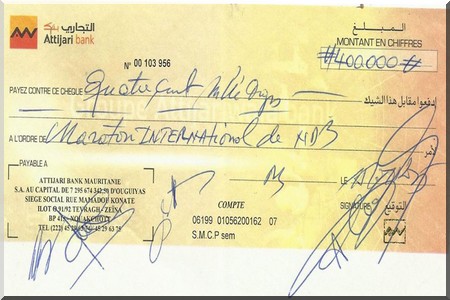 التجاري بنك
Attijari bank
المبلغ
MONTANT EN CHIFFRES
#400.000#
N° 00 103 956
PAYEZ CONTRE CE CHEQUE Quatre cent mille
إدفعوا مقابل هذا الشيك
A L'ORDRE DE Maraton INTERNATIONAL de NDB
لأمر
PAYABLE A
ATTIJARI BANK MAURITANIE
S.A. AU CAPITAL DE 7 295 674 342,50 D'OUGUIYAS
SIEGE SOCIAL RUE MAMADOU KONATE
ILOT 91/92 TEVRAGH - ZEINA
BP 415 - NOUAKCHOTT
TEL (222) 45 29 63 75
LE
COMPTE
06199 01056200162 07
S.M.C.P sem
SIGNATURE
التوقيع